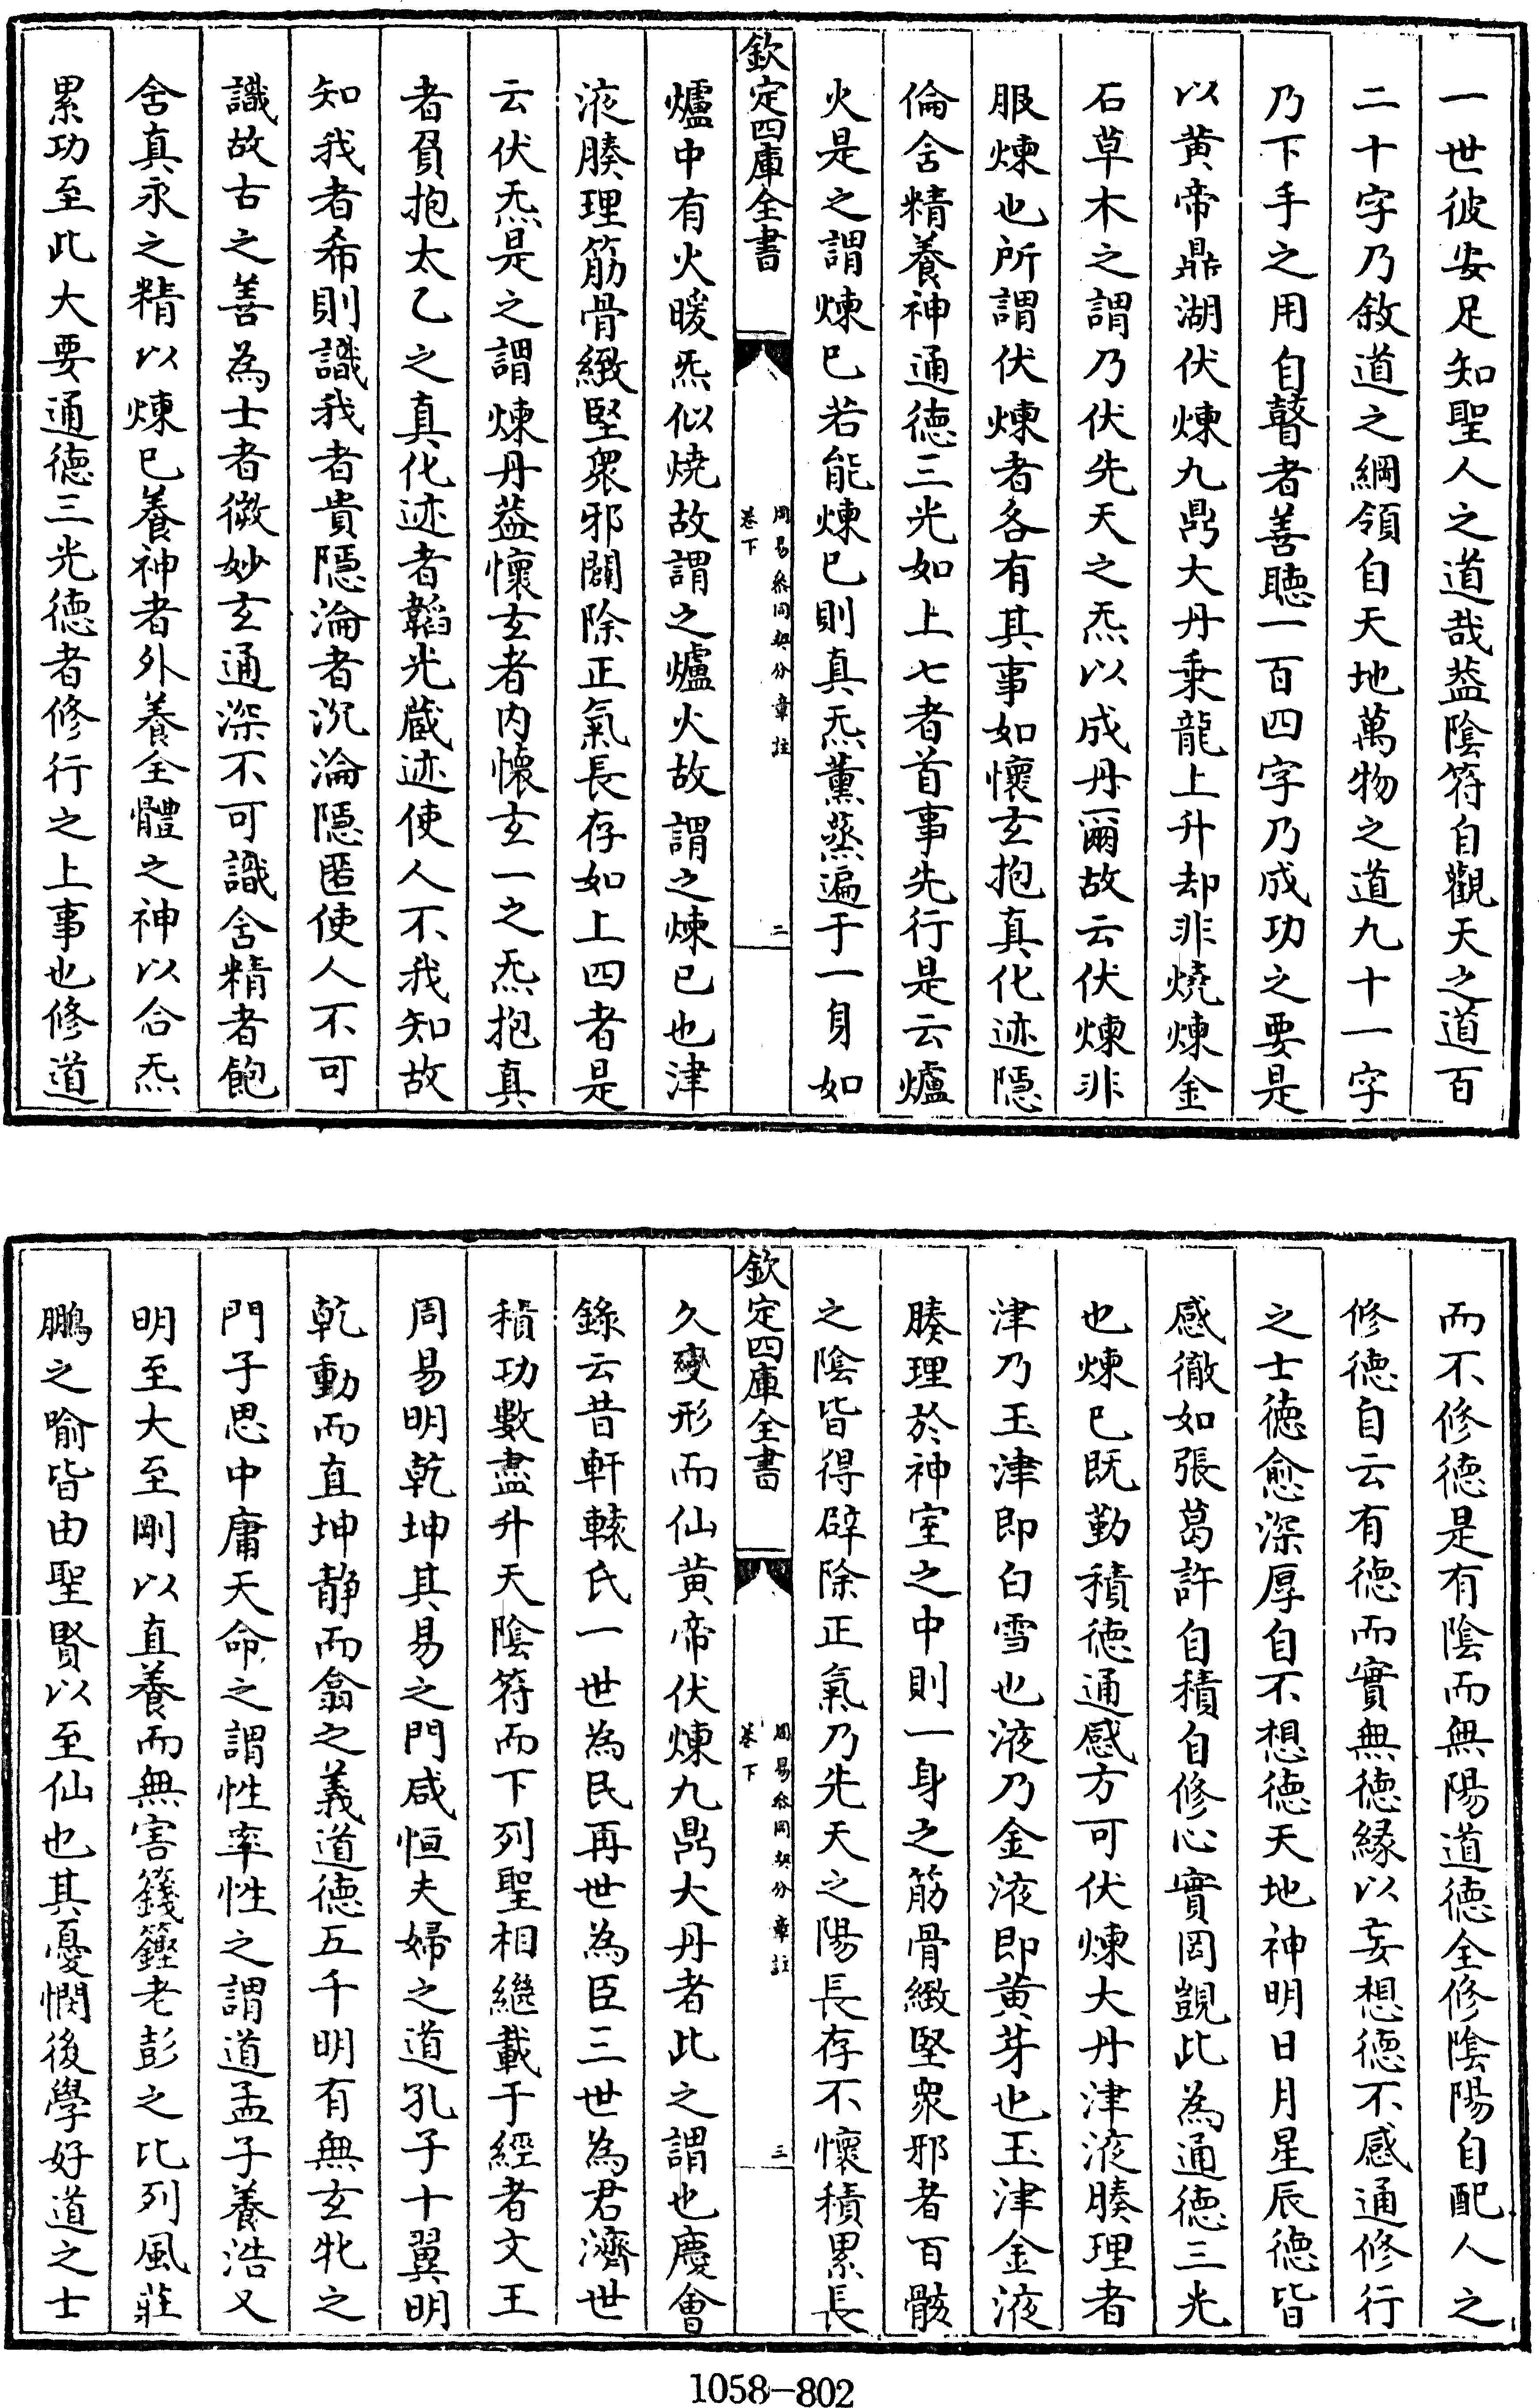 一世彼安足知聖人之道哉葢陰符自觀天之道百
二十字乃敘道之綱領自天地萬物之道九十一字
乃下手之用自瞽者善聽一百四字乃成功之要是
以黄帝鼎湖伏煉九鼎大丹乗龍上升却非燒煉金
石草木之謂乃伏先天之炁以成丹爾故云伏煉非
服煉也所謂伏煉者各有其事如懷玄抱真化迹隱
倫含精養神通德三光如上七者首事先行是云爐
火是之謂煉已若能煉已則真炁薰蒸遍于一身如
欽定四庫全書
周易參同契分章註
卷下
二
爐中有火暖炁似燒故謂之爐火故謂之煉已也津
液腠理筋骨緻堅衆邪闢除正氣長存如上四者是
云伏炁是之謂煉丹葢懷玄者内懷玄一之炁抱真
者負抱太乙之真化迹者韜光蔵迹使人不我知故
知我者希則識我者貴隱淪者沉淪隱匿使人不可
識故古之善為士者微妙玄通深不可識含精者飽
含真永之精以煉已養神者外養全體之神以合炁
累功至此大要通德三光德者修行之上事也修道
而不修德是有陰而無陽道德全修陰陽自配人之
修德自云有德而實無德緣以妄想德不感通修行
之士德愈深厚自不想德天地神明日月星辰德皆
感徹如張葛許自積自修心實罔覬此為通德三光
也煉已既勤積德通感方可伏煉大丹津液腠理者
津乃玉津即白雪也液乃金液即黄芽也玉津金液
腠理於神室之中則一身之筋骨緻堅衆邪者百骸
之陰皆得辟除正氣乃先天之陽長存不懷積累長
欽定四庫全書
周易參同契分章註
卷下
三
久變形而仙黄帝伏煉九鼎大丹者此之謂也慶會
錄云昔軒轅氏一世為民再世為臣三世為君濟世
積功數盡升天陰符而下列聖相繼載于經者文王
周易明乾坤其易之門咸恒夫婦之道孔子十翼明
乾動而直坤静而翕之義道德五千明有無玄牝之
門子思中庸天命之謂性率性之謂道孟子養浩又
明至大至剛以直養而無害籛鏗老彭之比列風莊
鵬之喻皆由聖賢以至仙也其憂憫後學好道之士
1058-802